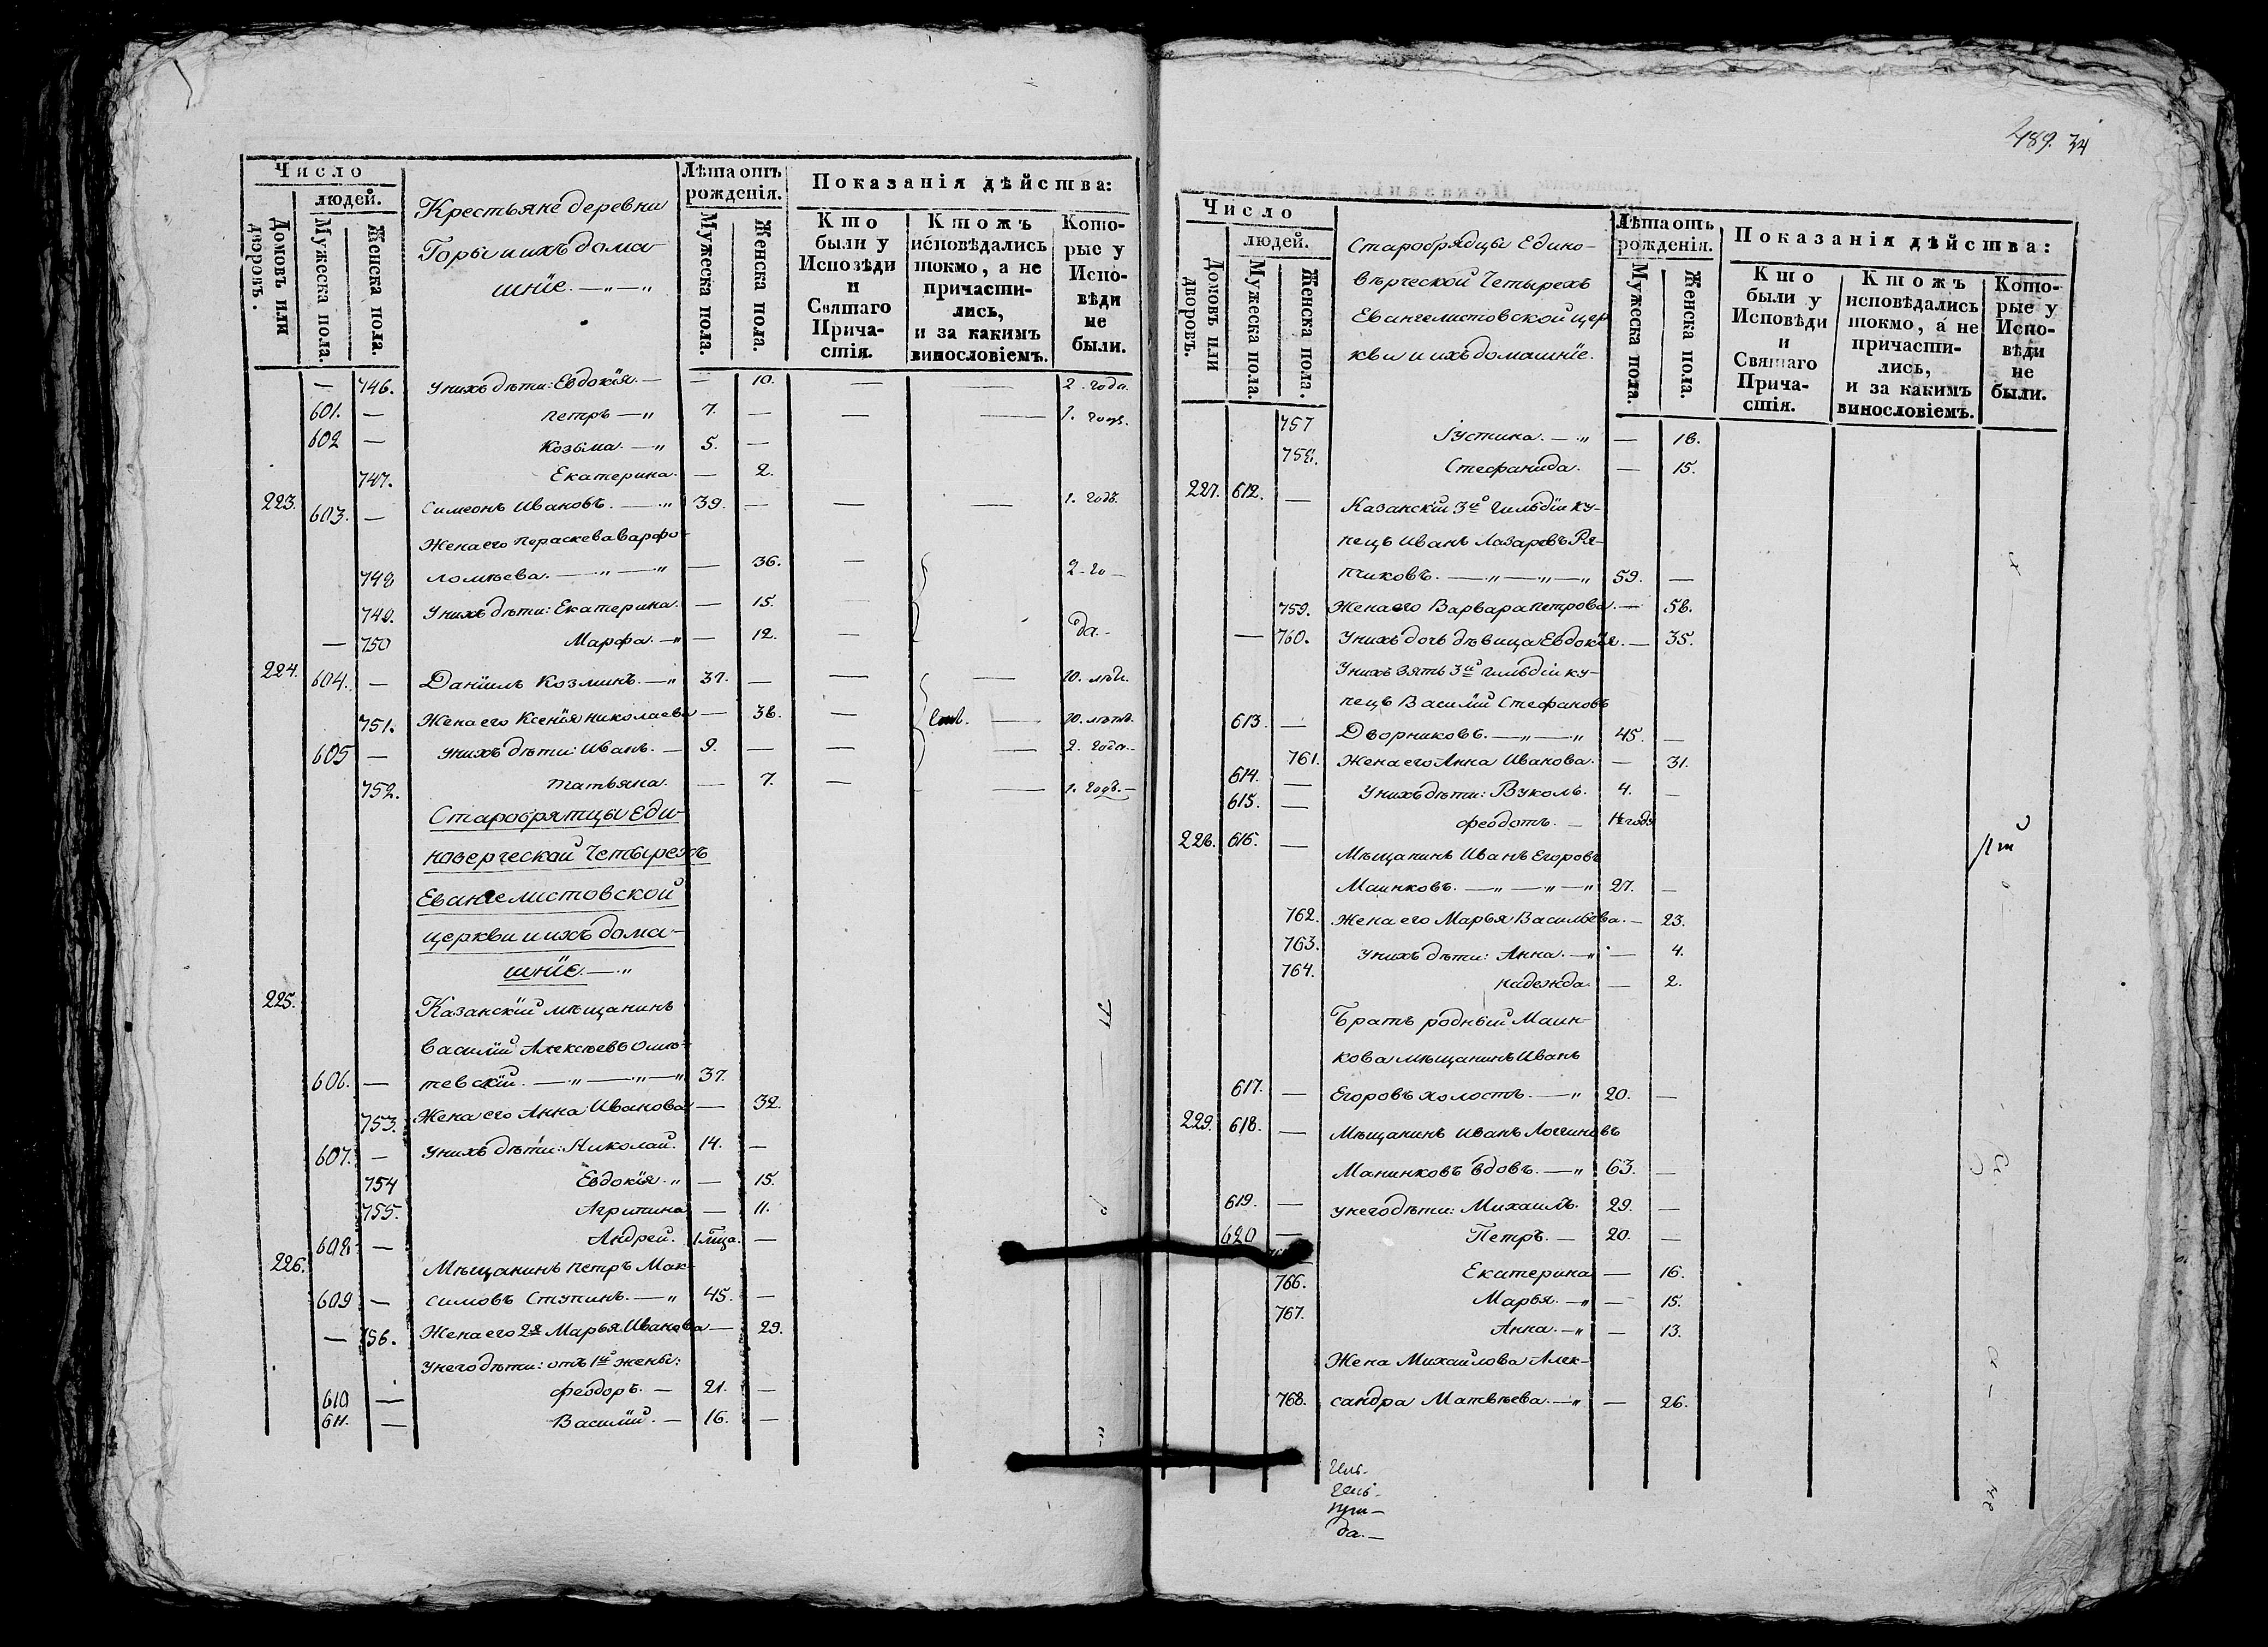 Число
людей.
Домовъ или дворовъ.
Мужеска пола.
Женска пола.
Крестьяне деревни
Горы и ихъ дома-
шніе. — „ — „
Лѣта отъ рожденія.
Мужеска пола.
Женска пола.
Показанія дѣйства:
Кто были у Исповѣди и Святаго Прича-стія.
Ктожъ исповѣдались токмо, а не причасти-лись, и за какимъ винословіемъ.
Кото-рые у Испо-вѣди не были.
— 746. У нихъ дѣти: Евдокія. — — 10. — — 2. года.
601. — Петръ — „ 7. — — — 1. годъ.
602 — Козьма. — „ 5. —
747. Екатерина. — 2.
223. 603. — Симеонъ Ивановъ. — „ 39. — — — 1. годъ.
Жена его Пераскева Варфо-
748 ломѣева. — „ — „ — 36. — 2 - го —
749. У нихъ дѣти: Екатерина. — 15. —
— 750 Марфа. — „ — 12. — да. -
224. 604. — Даніилъ Козминъ. — „ 37. — — — 10. лѣтъ.
751. Жена его Ксенія Николаева — 36. — — 10. лѣтъ.
605 — У нихъ дѣти: Иванъ. — 9. — — — 2. года. -
752. Татьяна. — 7. — — 1. годъ. —
Старобрятцы Еди-
новерческой Четырехъ
Евангелистовской
церкви и ихъ дома-
шніе. — „
225. Казанскій мѣщанинъ
Василій Алексѣевъ
606. — тевскій. — „ — „ — „ 37.
753. Жена его Анна Иванова — 32.
607. — У нихъ дѣти: Николай. 14. —
754 Евдокія. „ — 15.
755. Агрипина — 11.
608. — Андрей. 1 мца. —
226. Мѣщанинъ Петръ Мак-
609 — симовъ Ступинъ. — „ 45. —
— 756. Жена его 2я Марья Иванова — 29.
У него дѣти: отъ 1й жены:
610 — Феодоръ. — 21. —
611. — Василій. — 16. —
489. 34
Число
людей.
Домовъ или дворовъ.
Мужеска пола.
Женска пола.
Старобрядцы Едино-
вѣрческой Четырехъ
Евангелистовской цер
кви и ихъ домашніе.
Лѣта отъ рожденія.
Мужеска пола.
Женска пола.
Показанія дѣйства:
Кто были у Исповѣди и Святаго Прича-стія.
Ктожъ исповѣдались токмо, а не причасти-лись, и за какимъ винословіемъ.
Кото-рые у Испо-вѣди не были.
757 Іустина. — „ — 18.
758. Стефанида. — 15.
227. 612. — Казанскій 3й гильдіи ку-
пецъ Иванъ Лазаревъ Ря-
пчиковъ. — „ — „ — „ 59. —
759. Жена его Варвара Петрова. — 58.
— 760. У нихъ дочь дѣвица Евдокія. — 35.
У нихъ зять 3й гильдіи ку-
пецъ Василій Стефановъ
613. — Дворниковъ. — „ — „ 45. —
761. Жена его Анна Иванова. — 31.
614. — У нихъ дѣти: Вуколъ. 4. —
615. — Феодотъ. —
228. 616. — Мѣщанинъ Иванъ Егоровъ
Маинковъ. — „ — „ — „ 27. —
762. Жена его Марья Васильева. — 23.
763. У нихъ дѣти: Анна. — „ — 4.
764. Надежда. — 2.
Братъ родный Маин-
кова мѣщанинъ Иванъ
617. — Егоровъ холостъ. — „ 20. —
229. 618. — Мѣщанинъ Иванъ Логиновъ
Манинковъ вдовъ. — „ 63. —
619. — У него дѣти: Михаилъ. 29. —
620 — Петръ. — 20. —
Екатерина — 16.
766. Марья. — „ — 15.
767. Анна. — „ — 13.
Жена Михаилова Алек-
768. сандра Матвѣева. — „ — 26.
да. —